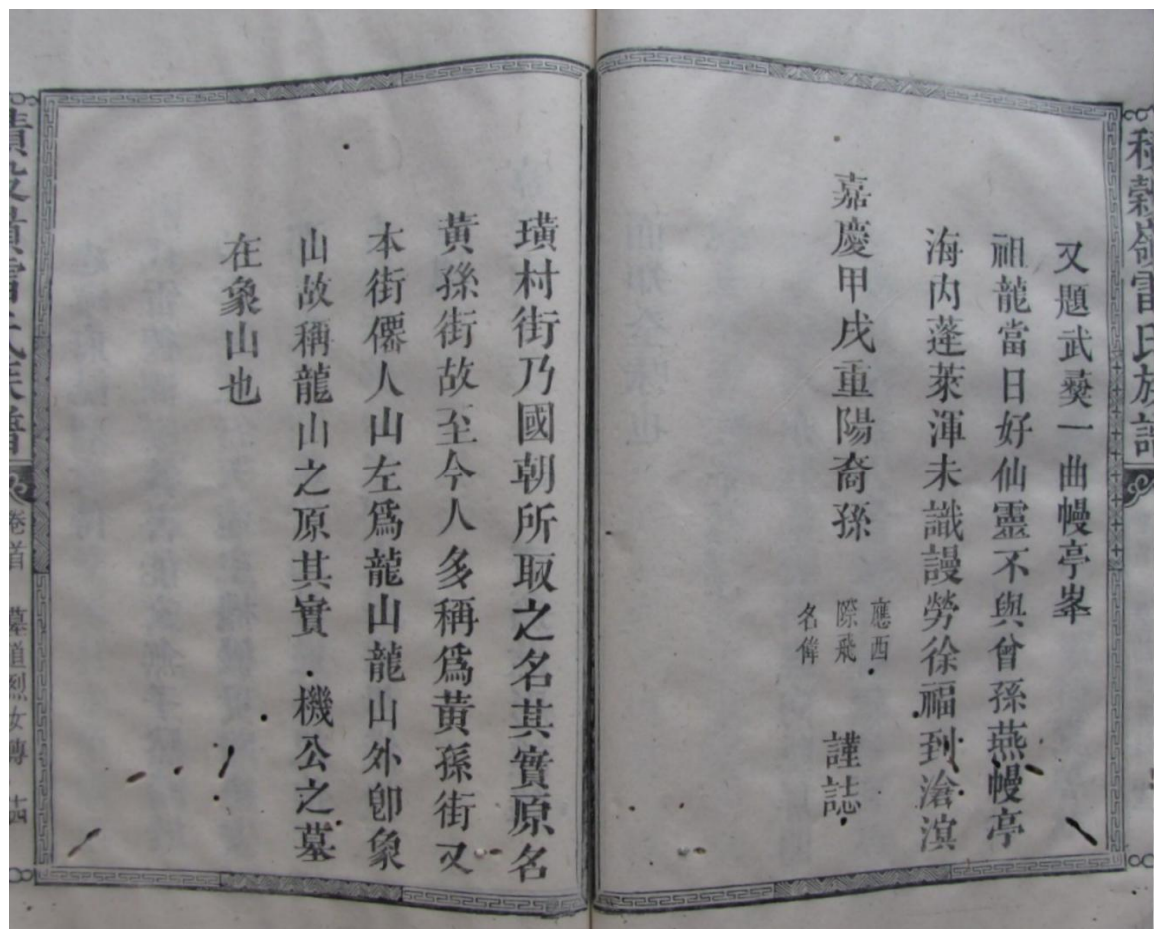 雷氏族譜
又題武彝一曲幔亭峯
祖龍當日好仙靈不與曾孫燕幔亭
海內蓬萊渾未識謾勞徐福到滄溟
嘉慶甲戌重陽裔孫
應西
際飛
名偉
謹誌
璜村街乃國朝所取之名其實原名
黃孫街故至今人多稱爲黃孫街又
本街僊人山左爲龍山龍山外卽象
山故稱龍山之原其實機公之墓
在象山也
卷首
墓道烈女傳